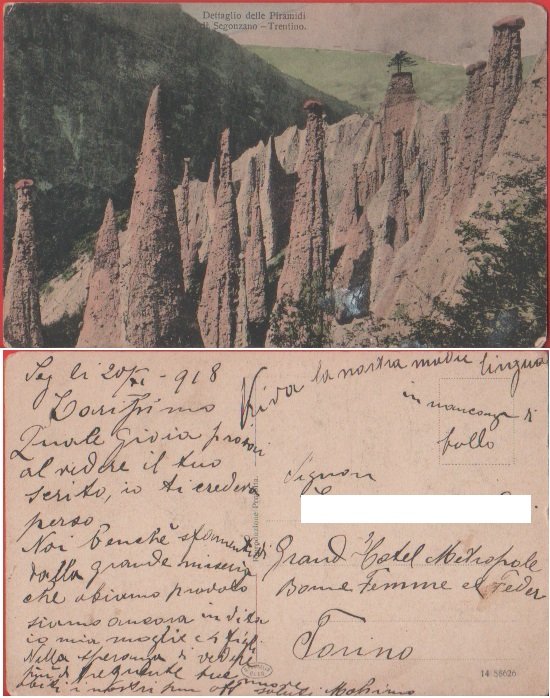 Dettaglio delle Piramidi
di Segonzano – Trentino.
Seg li 20/XI - 918
Carissimo
Quale gioia provai
al vedere il tuo
scrito, io ti credeva
perso
Noi benchè
dalla grande miseria
che abiamo provato
siamo ancora in vita
io mia moglie e 4 figli
Nella speranza di vederti
più di frequente
saluti Massimo
Viva la nostra madre lingua
in mancanza di
bollo
Signor
Grand Hotel Métropole
Bonne Femme et Feder
Torino
Riproduzione Proibita.
14 58626